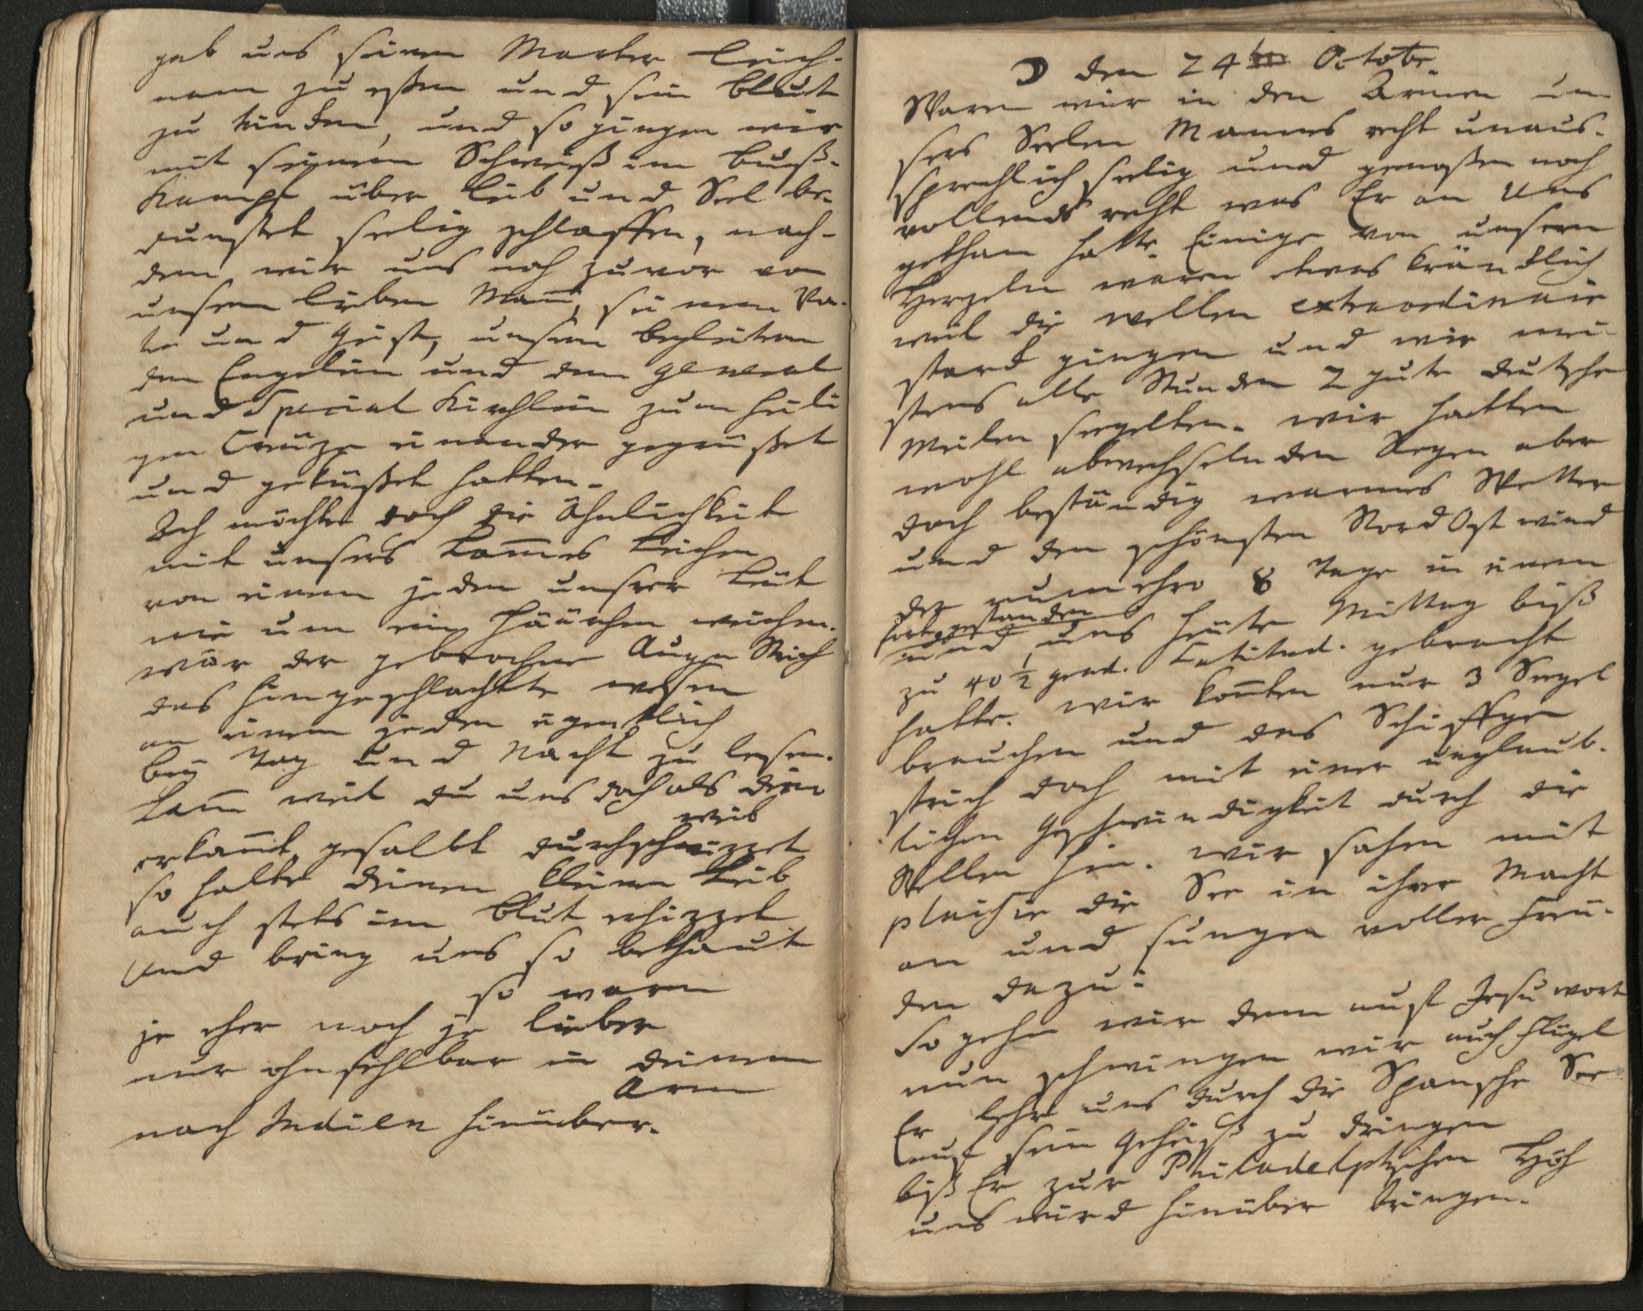 gab uns seinen Marter Leich-
nam zu eßen und sein Blut
zu trinken, und so gingen wir
mit seinem Schweiß im Buß-
Kampf über Leib und Seel be-
dunstet seelig schlaffen, nach-
dem wir uns noch zuvor von
unserm lieben Mann, seinem Va-
ter und Geist, unsern begleitern
den Engelein und dem General
und Special Kirchlein zum heili
gen Creuze einander gegrüßet
und geküßet hatten.
Ich möchte doch die Ähnlichkeit
mit unsers Lammes Leichen
von einem jeden unsrer Leut
nie um ein Häärchen weichen.
wär der gebrochne Augen Strich
das hingeschlachtte wesen
an einem jeden eigentlich
bey Tag und Nacht zu lesen.
Lamm weil du uns doch als dein
weib
erkannt gesalbt durchschwizzet
so halte deinen kleinen Leib
auch stets im Blut erhizzet
Und bring uns so bethaut
so warm
je eher noch je lieber
nur ohnfehlbar in deinem
Arm
nach Indien hinüber.
☽ den 24ten Octobr.
Waren wir in den Armen un-
sers Seelen Mannes recht unaus-
sprechlich seelig und genoßen noch
vollends recht was Er an Uns
gethan hatte. Einige von unsern
Herzeln waren etwas kräncklich
weil die wellen extraordinair
starck gingen und wir mei-
stens alle Stunden 2 gute deutsche
Meilen seegelten. wir hatten
wohl abwechselnden Regen aber
doch beständig warmes Wetter
und den schönsten NordOst wind
der nunmehro 8 Tage in einem
fort gestanden
und uns heute Mittag biß
zu 40 1/2 grad. Latitud. gebracht
hatte. wir konnten nur 3 Seegel
brauchen und das Schiffgen
strich doch mit einer unglaub-
lichen Geschwindigkeit durch die
Wellen hin. wir sahen mit
plaisir die See in ihrer Macht
an und sungen voller Freu-
den dazu:
So gehn wir denn aufs Jesu wort
nun schwingen wir auch Flügel
Er lehr uns durch die Spansche See
auf sein Geheiß zu dringen
biß Er zur Philadelphschen Höh
uns wird hinüber bringen.